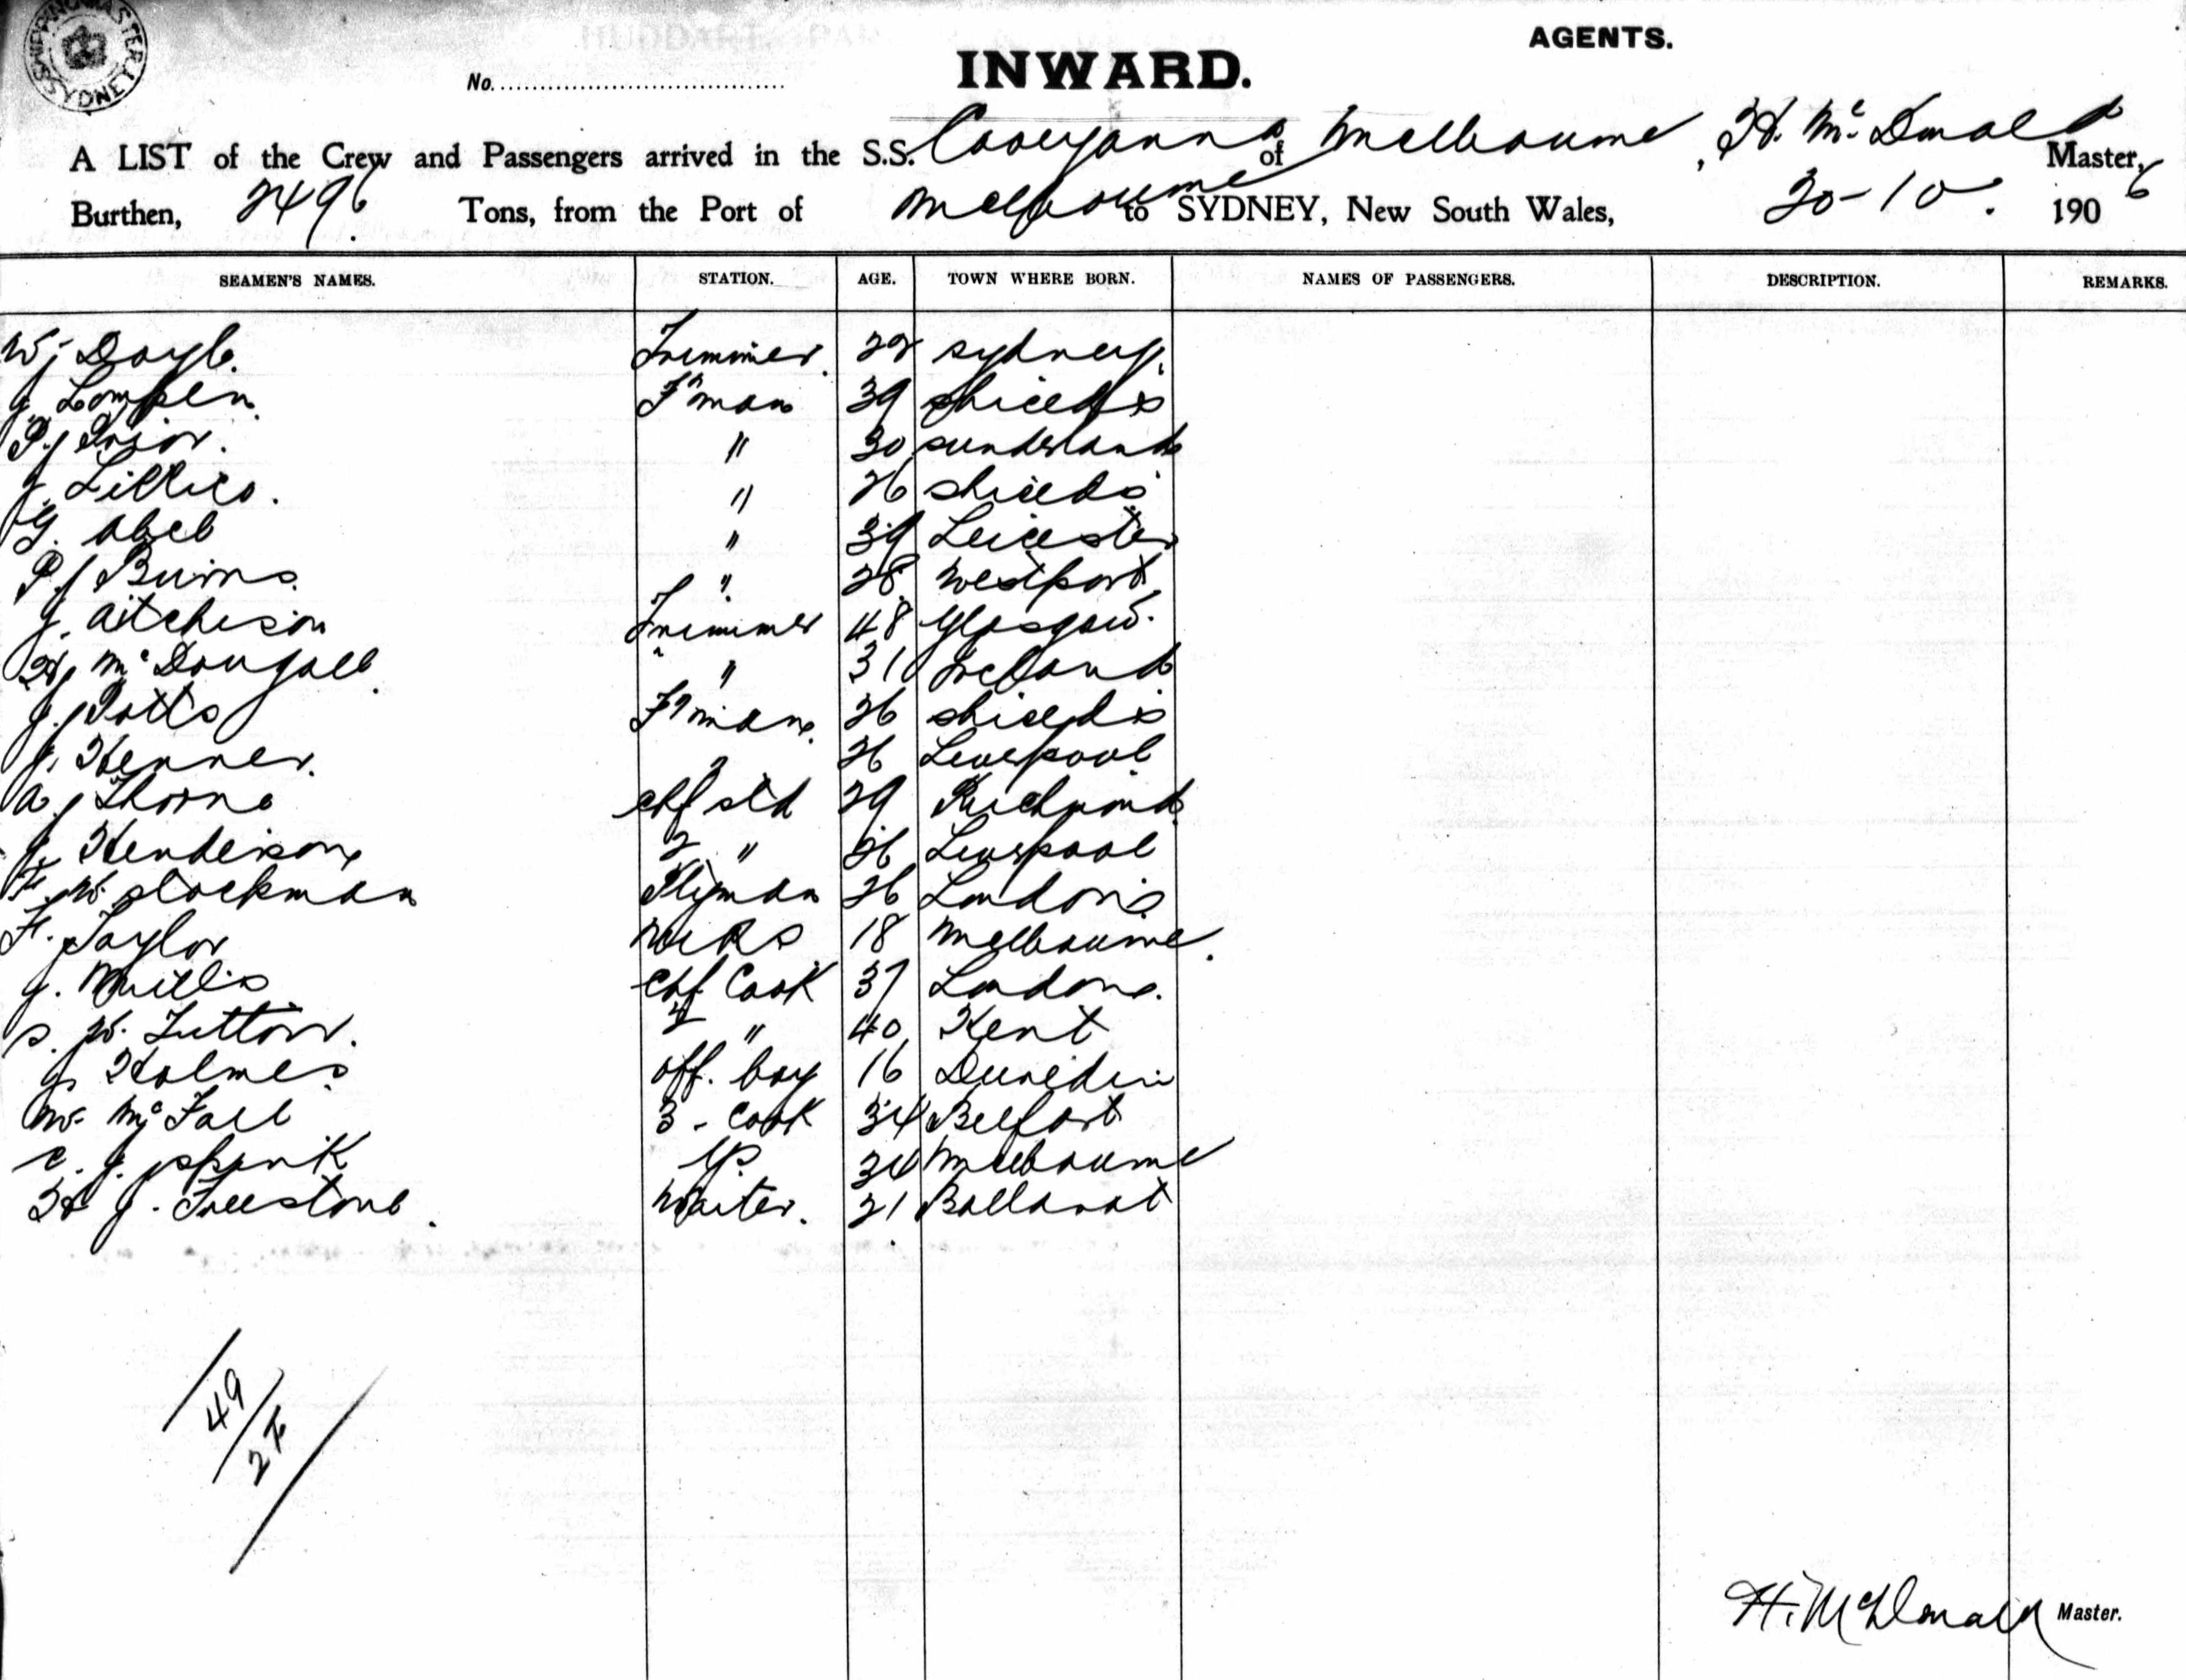 HUDDART, PAR
AGENTS.
No.
INWARD.
A LIST of the Crew and Passengers arrived in the S.S. Cooeyanna of Melbourne, H. McDonald Master,
Burthen, 2496 Tons, from the Port of Melbourne to SYDNEY, New South Wales, 30-10. 1906
SEAMEN'S NAMES. STATION. AGE. TOWN WHERE BORN. NAMES OF PASSENGERS. DESCRIPTION. REMARKS.
W. Doyle. Trimmer. 22 Sydney.
J. F'man 39 Shields
P. J. Prior. " 30 Sunderland
J. Lillico. " 26 Shields
G. Abel " 39 Leicester
P. J. Burns " 28 Westport
J. Aitcheson Trimmer 48 Glasgow.
H. McDougall " 31 Ireland
J. Potts F'man. 26 Shields
J. Kenner. " 26 Liverpool
A. J. Thorne chf std 29 Richmond
J. Henderson 2 " 26 Liverpool
F. W. Stockman P'tyman 26 London
F. Taylor 18 Melbourne.
J. Mills chf Cook 37 London.
S. W. Tutton. 2 " 40 Kent
J. Holmes off. boy 16 Dunedin
W. McFall 3 - Cook 34 Belfast
C. J. Spink 34 Melbourne
H J. Freestone. Waiter. 21 Ballarat
49
H. McDonald Master.